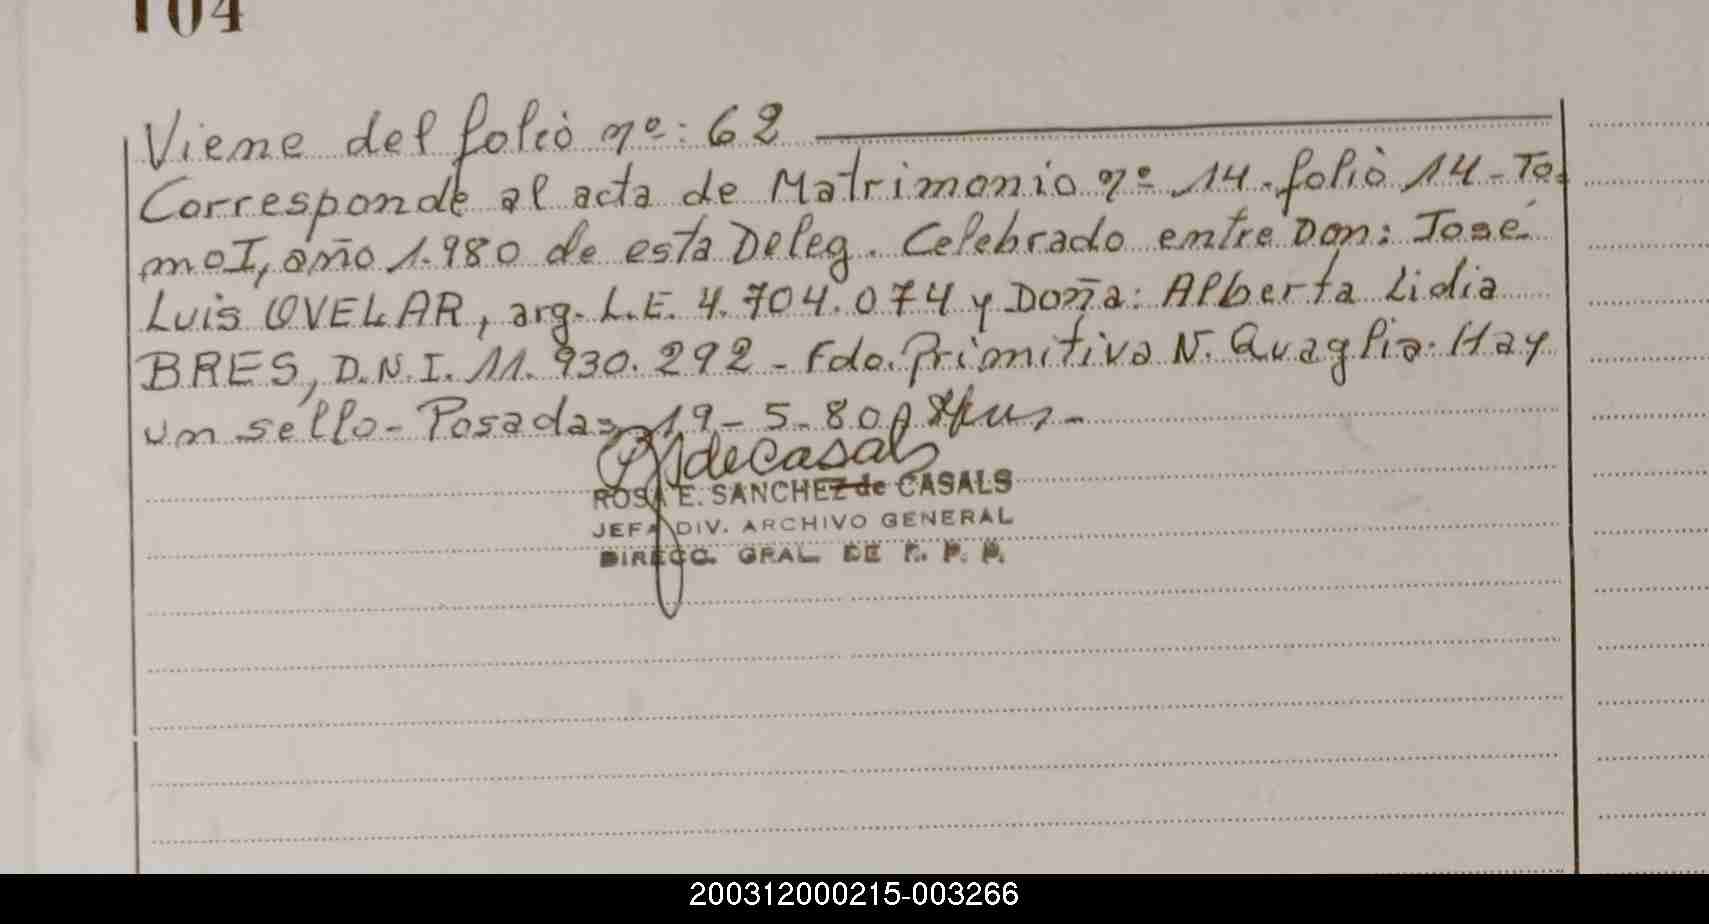 104
Viene del folio nº: 62
Corresponde al acta de Matrimonio nº 14. folio 14-To-
mo I, año 1.980 de esta Deleg. Celebrado entre Don: José
Luis OVELAR, arg. L.E. 4.704.074 y Doña: Alberta Lidia
BRES, D.N.I. 11.930.292 - Fdo. Primitiva N. Quaglia. Hay
un sello - Posadas, 19-5-80
deCasals
ROSA E. SANCHEZ de CASALS
JEFA DIV. ARCHIVO GENERAL
DIRECC. GRAL. DE R. P. P.
200312000215-003266